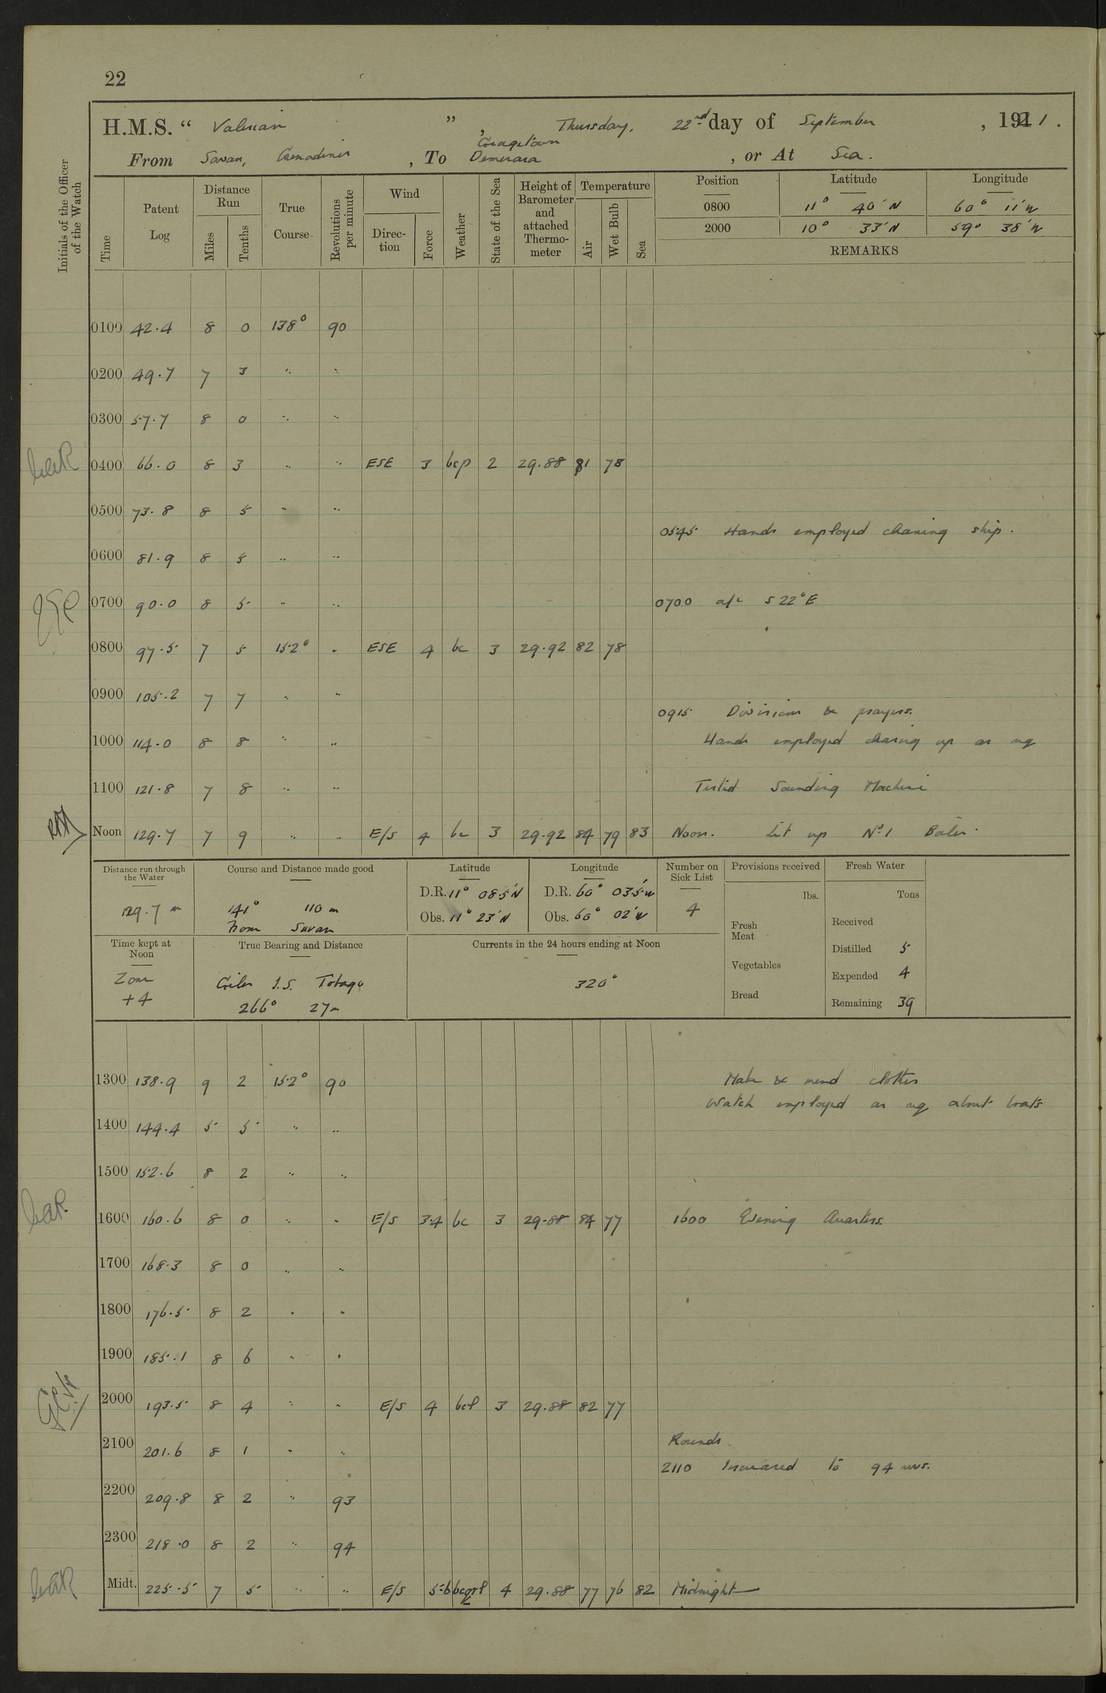 22
H.M.S. “ Valerian ” , Thursday, 22nd day of September , 1921.
From Savan, Grenadines , To Georgetown Demerara , or At Sea.
Initials of the Officer of the Watch
Time Patent Log Distance Run Miles Tenths True Course Revolutions per minute Wind Direction Force Weather State of the Sea Height of Barometer and attached Thermometer Temperature Air Wet Bulb Sea
Position Latitude Longitude
0800 11° 40´N 60° 11´W
2000 10° 33´N 59° 38´W
REMARKS
0100 42.4 8 0 138° 90
0200 49.7 7 3 " "
0300 57.7 8 0 " "
0400 66.0 8 3 " " ESE 3 bcp 2 29.88 81 78
0500 73.8 8 5 " "
0545 Hands employed cleaning ship.
0600 81.9 8 5 " "
0700 90.0 8 5 " " 0700 a/c S 22°E
0800 97.5 7 5 152° " ESE 4 bc 3 29.92 82 78
0900 105.2 7 7 " "
0915 Divisions & prayers.
1000 114.0 8 8 " " Hands employed cleaning up as req
1100 121.8 7 8 " " Tested Sounding Machine
Noon 129.7 7 9 " " E/S 4 bc 3 29.92 84 79 83 Noon. Lit up No.1 Boiler.
Distance run through the Water
129.7 m
Course and Distance made good
141° 110 m
from Savan
Latitude
D.R. 11° 08.5´N
Obs. 11° 23´N
Longitude
D.R. 60° 03.5´W
Obs. 60° 02´W
Number on Sick List
4
Provisions received
lbs.
Fresh Meat
Vegetables
Bread
Fresh Water
Tons
Received
Distilled 5
Expended 4
Remaining 39
Time kept at Noon
Zone
+4
True Bearing and Distance
Giles I.S. Tobago
266° 27m
Currents in the 24 hours ending at Noon
320°
1300 138.9 9 2 152° 90 Make & mend clothes
Watch employed as req about boats
1400 144.4 5 5 " "
1500 152.6 8 2 " "
1600 160.6 8 0 " " E/S 3.4 bc 3 29.88 84 77 1600 Evening Quarters.
1700 168.3 8 0 " "
1800 176.5 8 2 " "
1900 185.1 8 6 " "
2000 193.5 8 4 " " E/S 4 bcl 3 29.88 82 77
2100 201.6 8 1 " " Rounds.
2110 Increased to 94 revs.
2200 209.8 8 2 " 93
2300 218.0 8 2 " 94
Midt. 225.5 7 5 " " E/S 5-6 4 29.88 77 76 82 Midnight